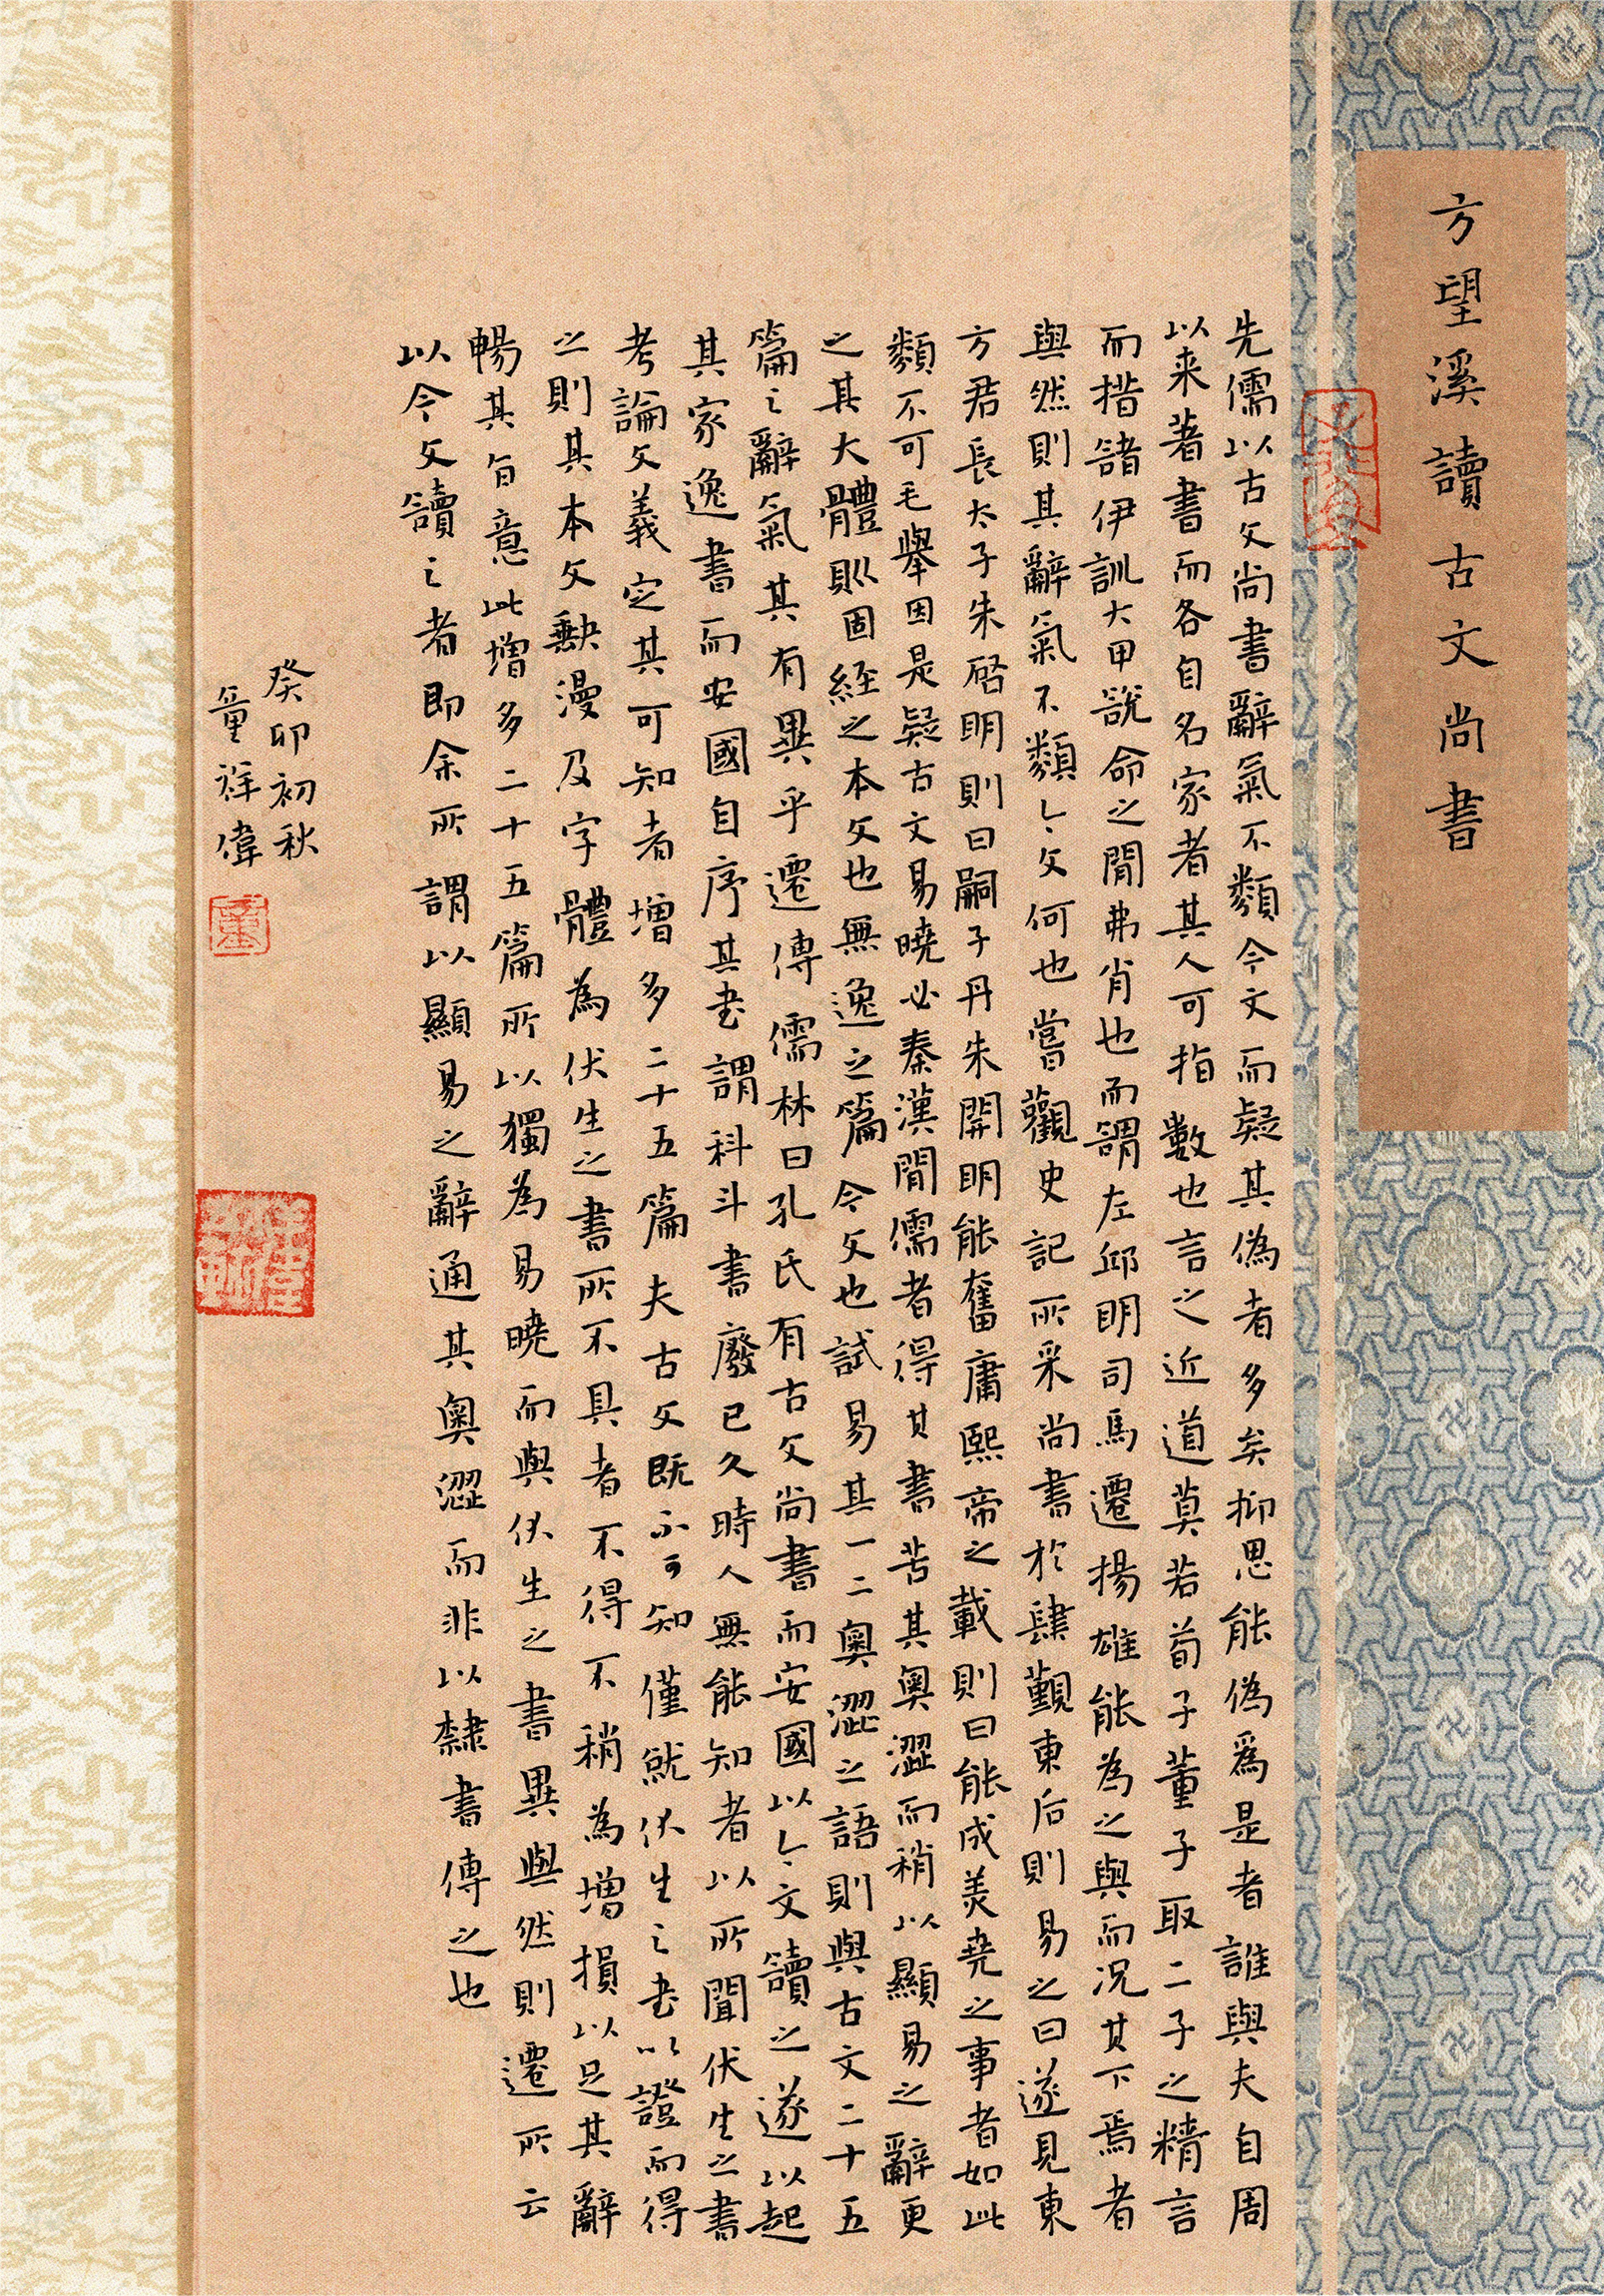 方望溪讀古文尚書
先儒以古文尚書辭氣不類今文而疑其偽者多矣抑思能偽為是者誰與夫自周
以来著書而各自名家者其人可指數也言之近道莫若荀子董子取二子之精言
而措諸伊訓大甲說命之間弗肖也而謂左邱明司馬遷揚雄能為之與而况其下焉者
與然則其辭氣不類今文何也嘗觀史記所采尚書於肆覲東后則易之曰遂見東
方君長太子朱啓明則曰嗣子丹朱開明能奮庸熙帝之載則曰能成美堯之事者如此
類不可毛舉因是疑古文易曉必秦漢間儒者得其書苦其奧澀而稍以顯易之辭更
之其大體則固經之本文也無逸之篇今文也試易其一二奧澀之語則與古文二十五
篇之辭氣其有異乎遷傳儒林曰孔氏有古文尚書而安國以今文讀之遂以起
其家逸書而安國自序其書謂科斗書廢已久時人無能知者以所聞伏生之書
考論文義定其可知者增多二十五篇夫古文既不可知僅就伏生之書以證而得
之則其本文缺漫及字體為伏生之書所不具者不得不稍為增損以足其辭
暢其旨意此增多二十五篇所以獨為易曉而與伏生之書異與然則遷所云
以今文讀之者即余所謂以顯易之辭通其奧澀而非以隸書傳之也
癸卯初秋
童祥偉
童